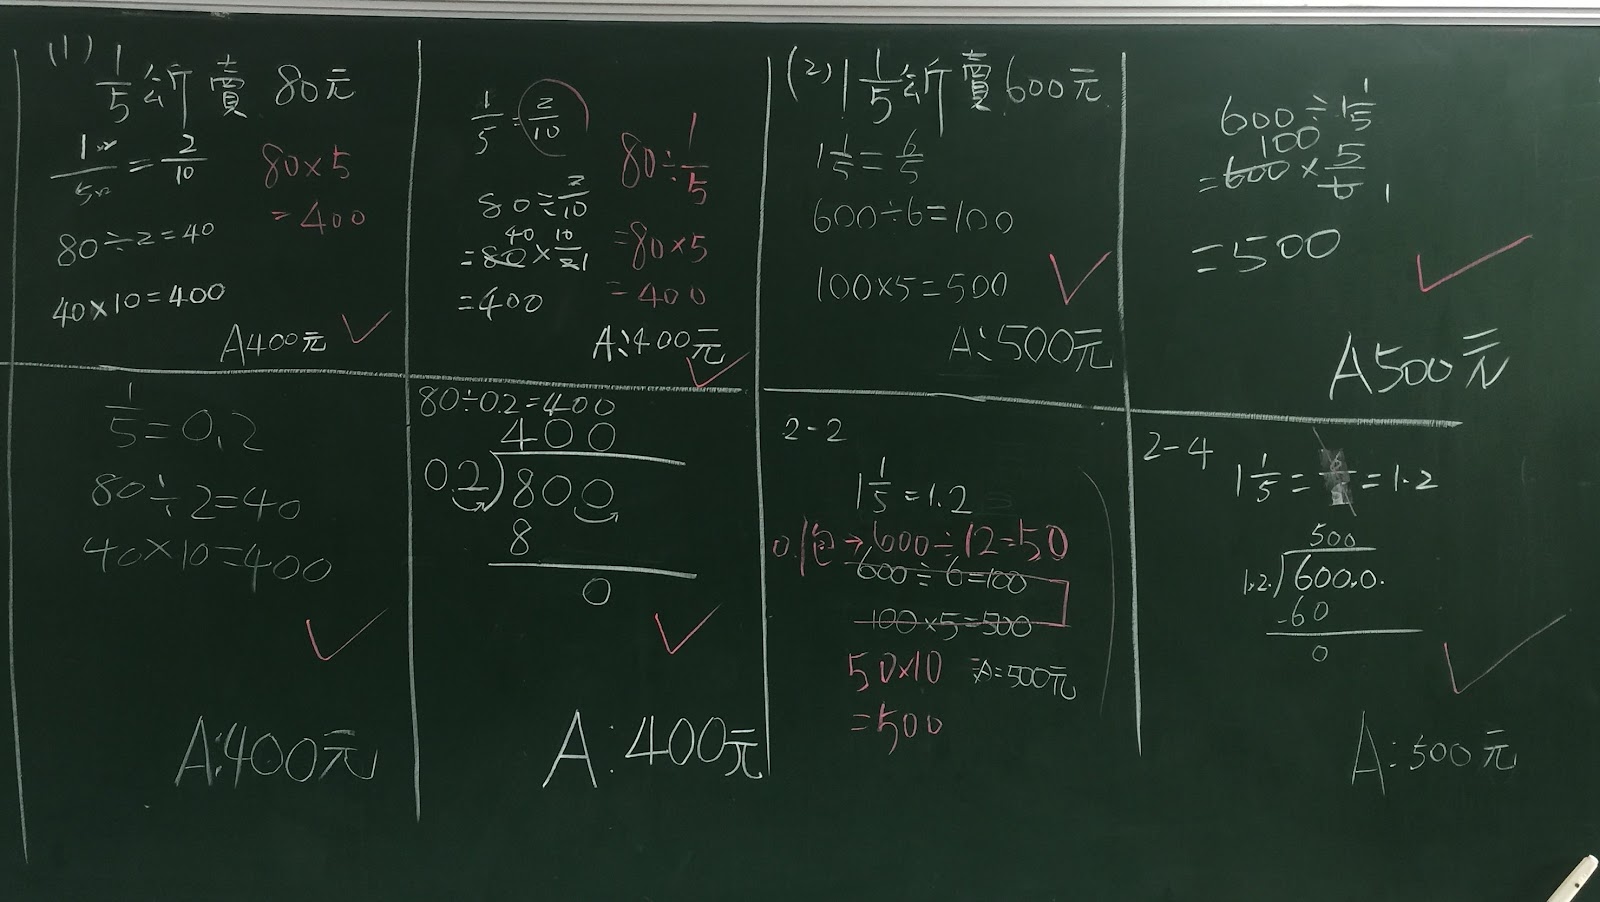 (1)
1/5 斤賣 80元
1×2/5×2 = 2/10
80÷2=40
40×10=400
80×5
=400
A400元
1/5=2/10
80÷2/10
40 10
=80×10/2 1
=400
80÷1/5
=80×5
=400
A:400元
(2) 1 1/5 斤賣600元
1 1/5=6/5
600÷6=100
100×5=500
A:500元
600÷1 1/5
100
=600×5/6 1
=500
A500元
1/5=0.2
80÷2=40
40×10=400
A:400元
80÷0.2=400
400
0.2)800
8
0
A:400元
2-2
1 1/5=1.2
→600÷12=50
600÷6=100
100×5=500
50×10
=500
A=500元
2-4
1 1/5= =1.2
500
1.2.)600.0.
-60
0
A:500元